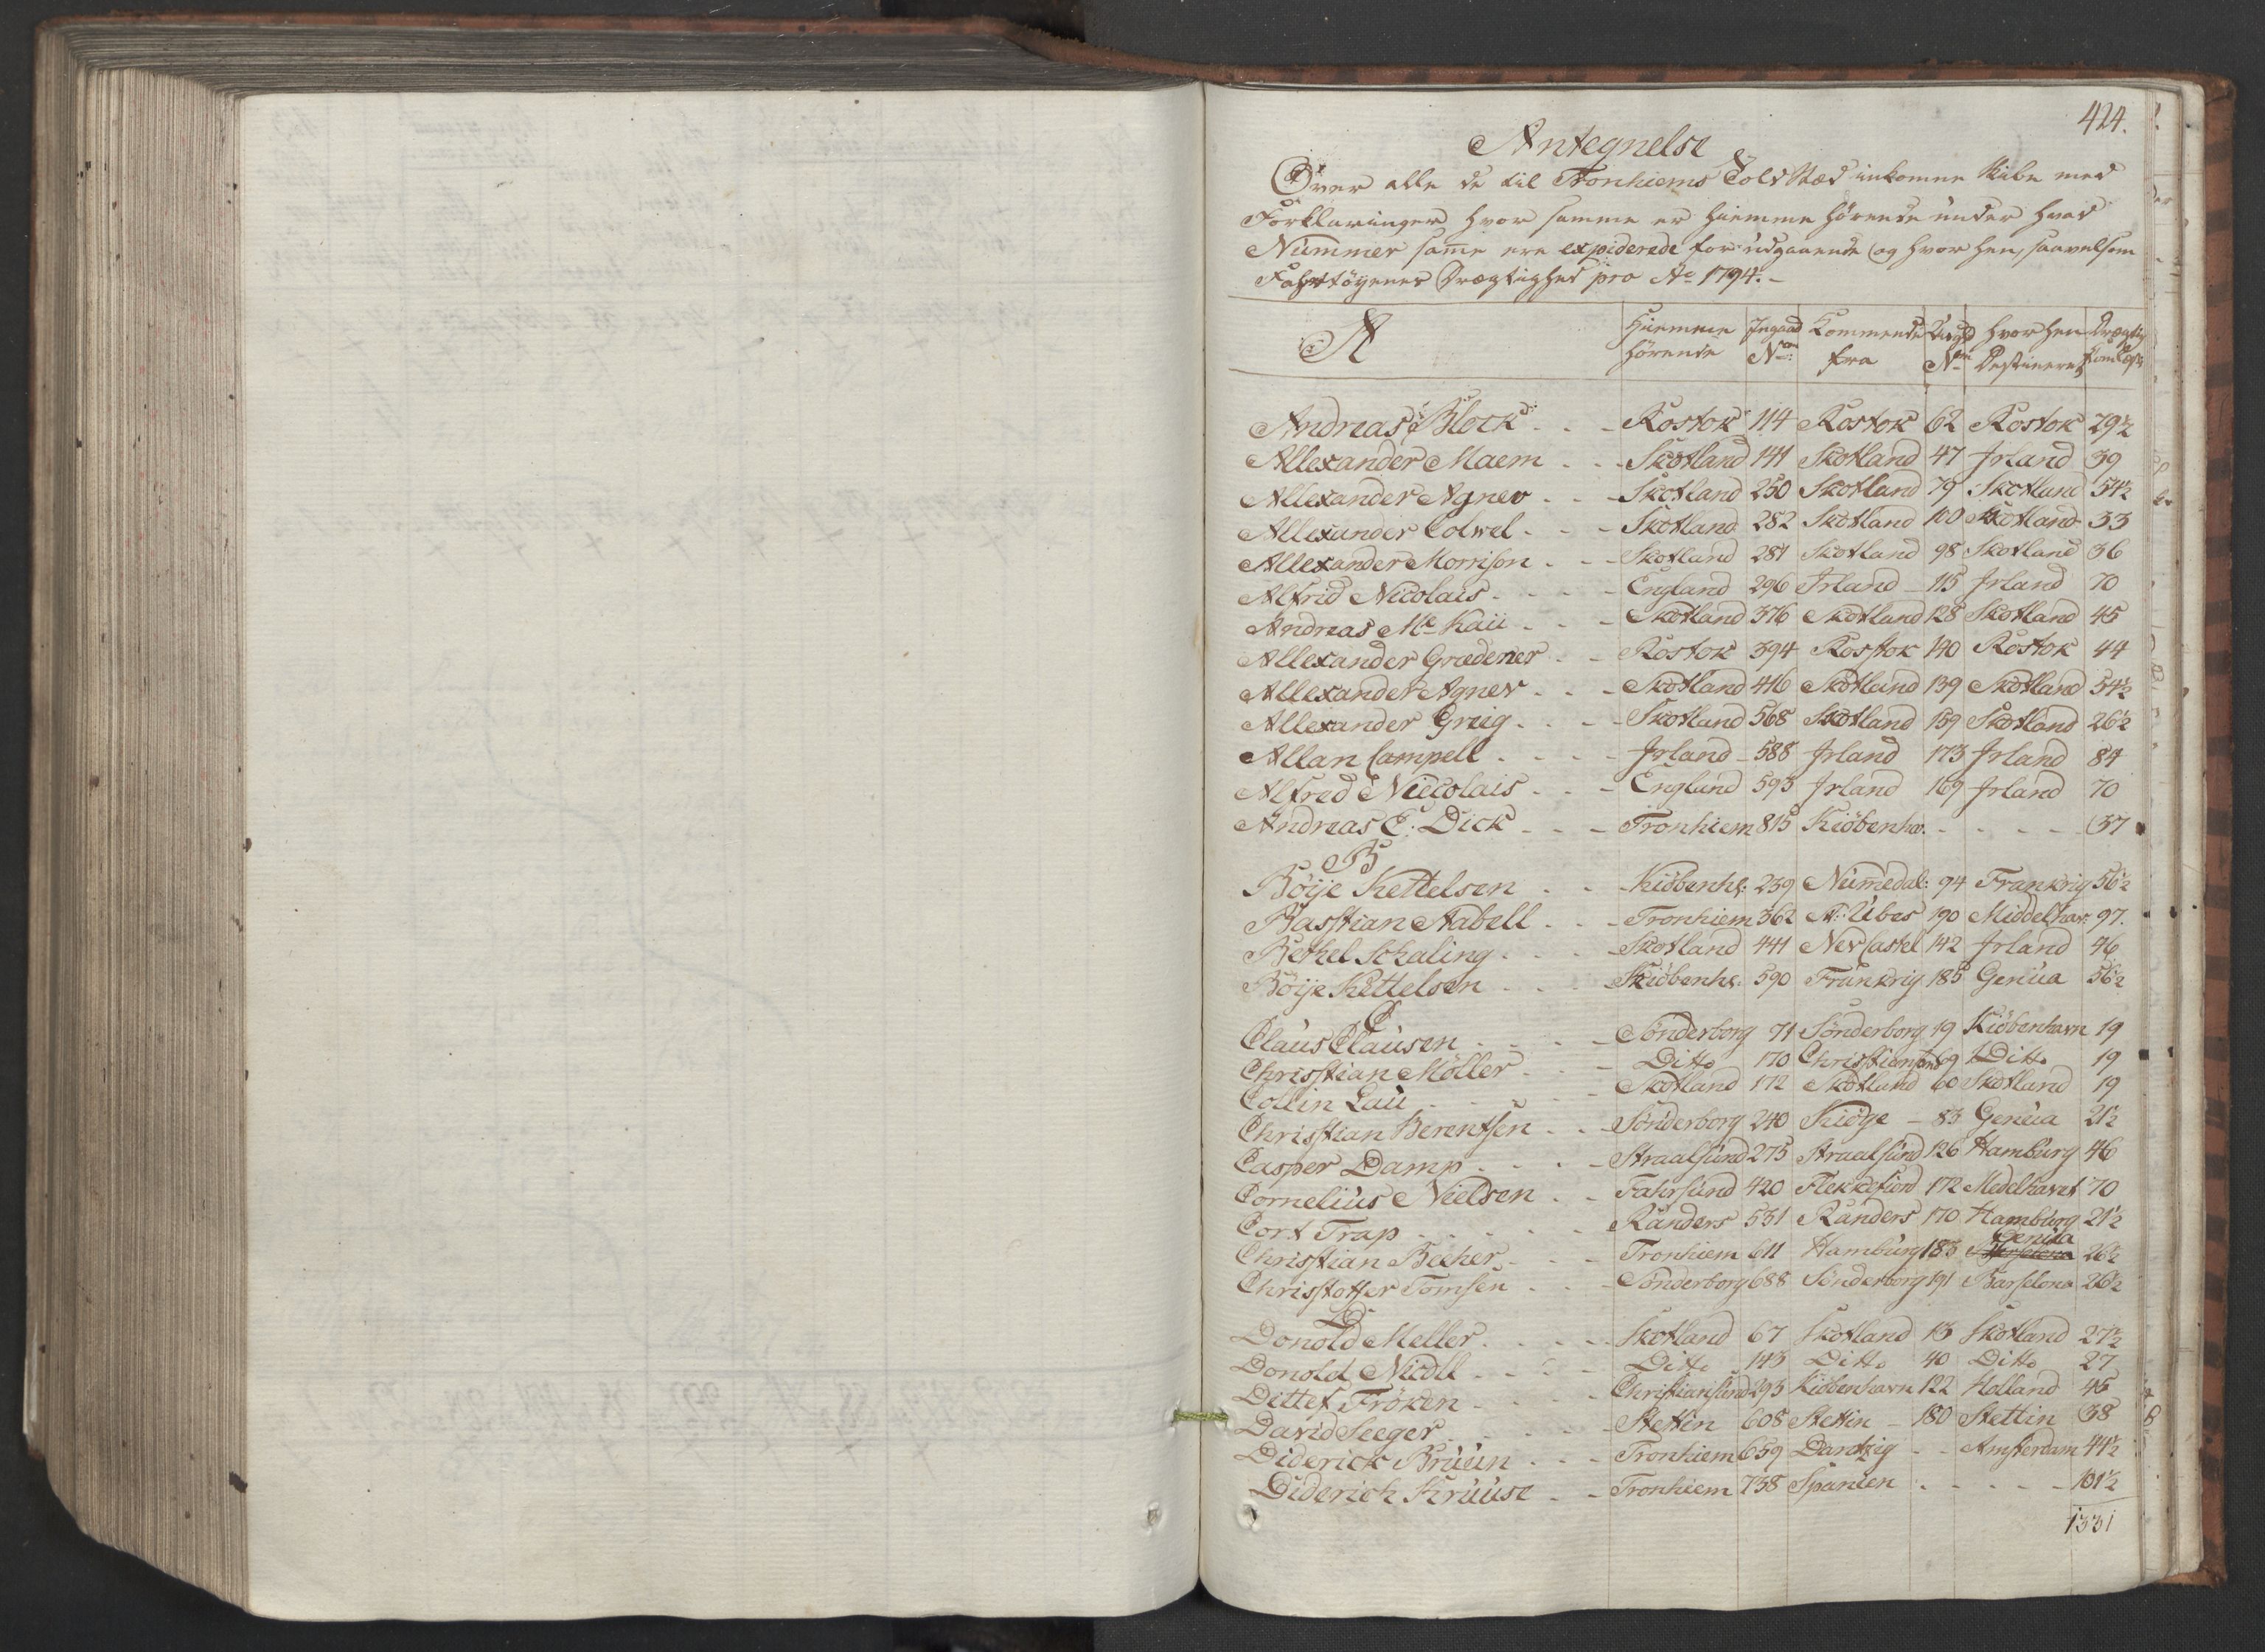 424.
Antegnelse
Over alle de til Tronhiems Told Stæd inkomne Skibe med
Forklaringer hvor samme er hiemme hörende under hvad
Nummer samе ere expiderede for udgaaende og hvor hen, saavelsom
Fahrtöyenes Drægtighed pro Ao 1794.
A Hiemme hörende Ingaad No: Kommende fra Udgd No hvor hen Destineret Drægtig Com Læst
Andreas Block - - Rostok 114 Rostok 62 Rostok 29½
Allexander Maem - - Skotland 141 Skotland 47 Irland 39
Allexander Agnev - - Skotland 250 Skotland 79 Skotland 54½
Allexander Colwel - - Skotland 282 Skotland 100 Skotland 33
Allexander Morrison - - Skotland 281 Skotland 98 Skotland 36
Alfrid Nicolais - - England 296 Irland 115 Irland 70
Andreas Mc Kaii - - Skotland 376 Skotland 128 Skotland 45
Allexander Gredener - - Rostok 394 Rosstok 140 Rostok 44
Allexander Agnev - - Skotland 416 Skotland 139 Skotland 54½
Allexander Greig - - Skotland 568 Skotland 159 Skotland 26½
Allan Campell - - Irland 588 Irland 173 Irland 84
Alfred Niecolais - - England 593 Irland 169 Irland 70
Andreas E. Dick - - Tronhiem 815 Kiöbenhv. - - - 37
B
Böije Kettelsen - - Kiöbenh: 239 Numedal: 94 Frankrig 56½
Basstian Stabell - - Tronhiem 362 St: Ubes 190 Middelhav: 97.
Bethel Schaling - - Skotland 441 Nev Castel 142 Irland 46
Böije Kettelsen - - Kiöbenh: 590 Frankrig 185 Genua 56½
C
Claus Clausen - - Sönderborg 71 Sönderborg 19 Kiöbenhavn 19
Christian Möller - - Ditto 170 Christiansund 69 Ditto 19
Collin Lau - - Skotland 172 Skotland 60 Skotland 19
Christian Berentsen - - Sönderborg 240 Kiöge - 83 Genua 21½
Casper Damp - - Straalsund 275 Straalsund 126 Hamburg 46
Cornelius Nielsen - - Fahrsund 420 Flekkefiord 172 Medelhavet 70
Cort Trap - - Randers 531 Randers 170 Hamburg 21½
Christian Becher - - Tronhiem 611 Hamburg 183 Genua 26½
Christoffer Tomsen - - Sönderborg 688 Sönderborg 191 Barselona 26½
D
Donold Meller - - Skotland 67 Skotland 13 Skotland 27½
Donold Nicdll - - Ditto 143 Ditto 40 Ditto 27
Dittef Fröken - - Christiansund 295 Kiöbenhavn 122 Holland 45
David Seeger - - Stettin 608 Stettin - 180 Stettin 38
Diderick Bruun - - Tronhiem 659 Dantzig - - Amsterdam 44½
Diderich Kruuse - - Tronhiem 738 Spanien - - - 101½
1331